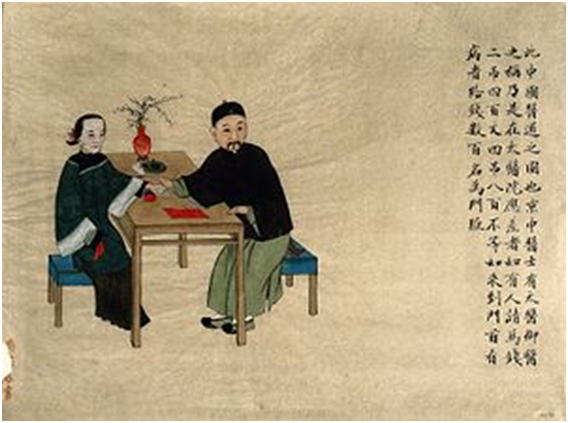 此中國醫道之圖也京中醫士有太醫御醫
之稱乃是在太醫院應差者如有人請馬錢
二吊四百文四吊八百不等如來到門首看
病者給錢數百名為門脉